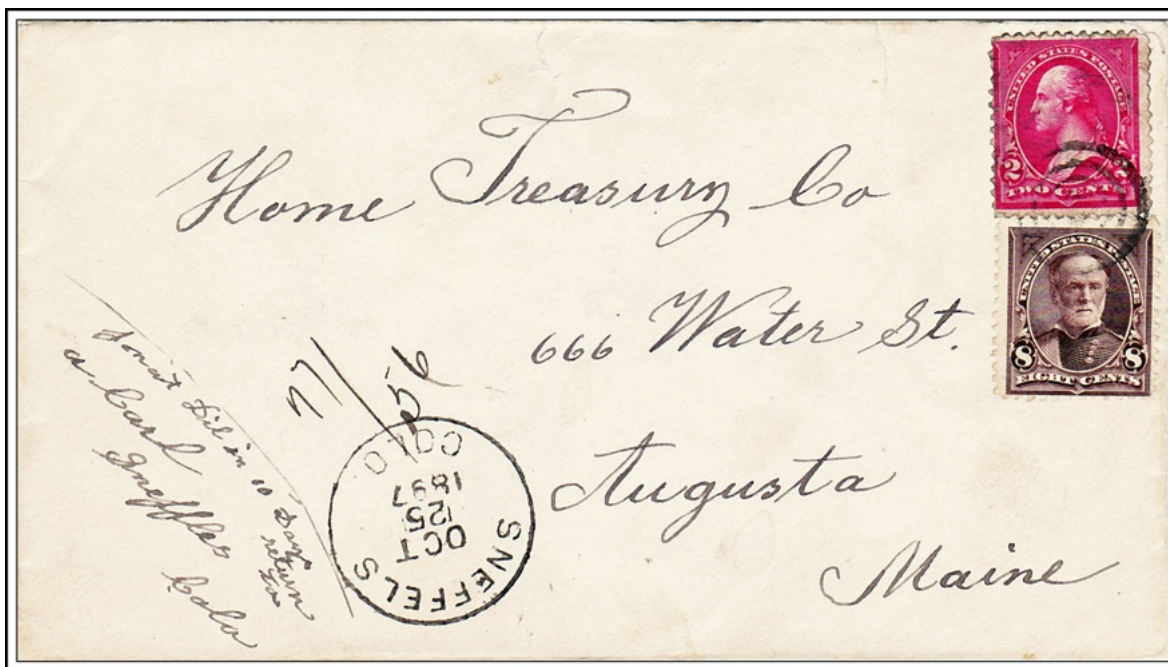 Home Treasury Co
666 Water St.
Augusta
Maine
UNITED STATES POSTAGE
2 2
TWO CENTS
UNITED STATES POSTAGE
8 8
EIGHT CENTS
SNEFFELS
OCT
25
1897
COLO
in 10 Days
return
to
Carl
Sneffles
Colo